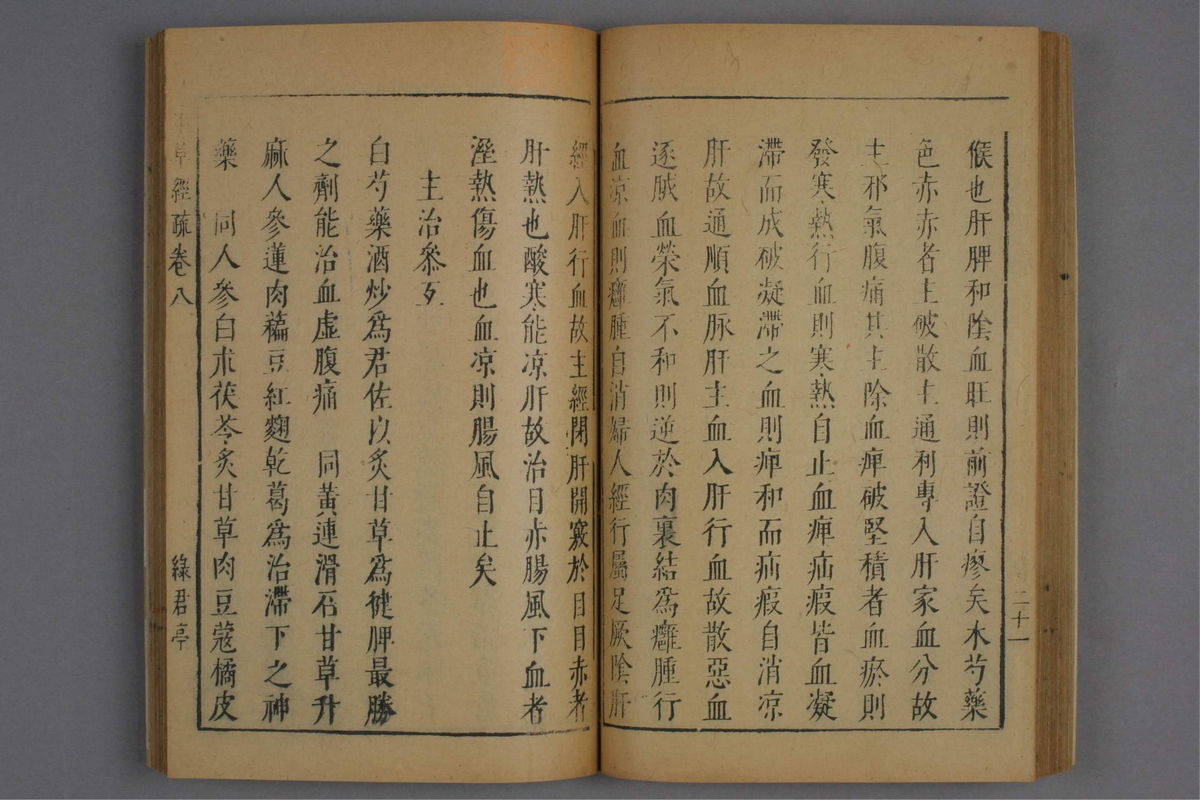 二十一
候也肝脾和陰血旺則前證自瘳矣木芍藥
色赤赤者主破散主通利專入肝家血分故
主邪氣腹痛其主除血痺破堅積者血瘀則
發寒熱行血則寒熱自止血痺疝瘕皆血凝
滯而成破凝滯之血則痺和而疝瘕自消凉
肝故通順血脉肝主血入肝行血故散惡血
逐賊血榮氣不和則逆於肉裏結爲癰腫行
血凉血則癰腫自消婦人經行屬足厥陰肝
經入肝行血故主經閉肝開竅於目目赤者
肝熱也酸寒能凉肝故治目赤腸風下血者
溼熱傷血也血凉則腸風自止矣
主治叅互
白芍藥酒炒爲君佐以炙甘草爲健脾最勝
之劑能治血虛腹痛 同黃連滑石甘草升
麻人參蓮肉藊豆紅麴乾葛爲治滯下之神
藥 同人參白朮茯苓炙甘草肉豆蔻橘皮
草經疏卷八 綠君亭